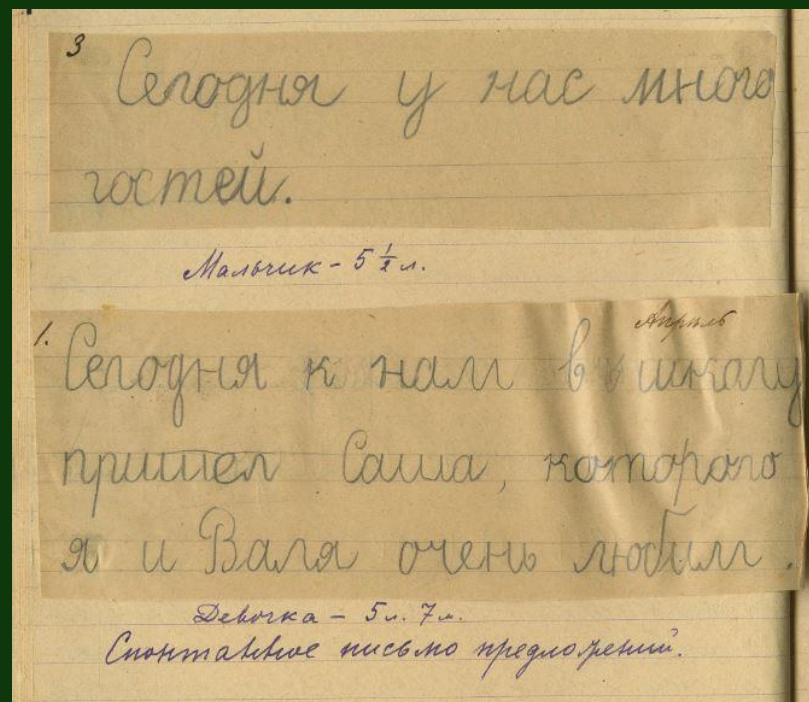 3
Сегодня у нас много
гостей.
Мальчик - 5 ½ л.
Апрель
1. Сегодня к нам в школу
пришел Саша, которого
я и Валя очень любим.
Девочка - 5 л. 7 м.
Спонтанное письмо предложений.